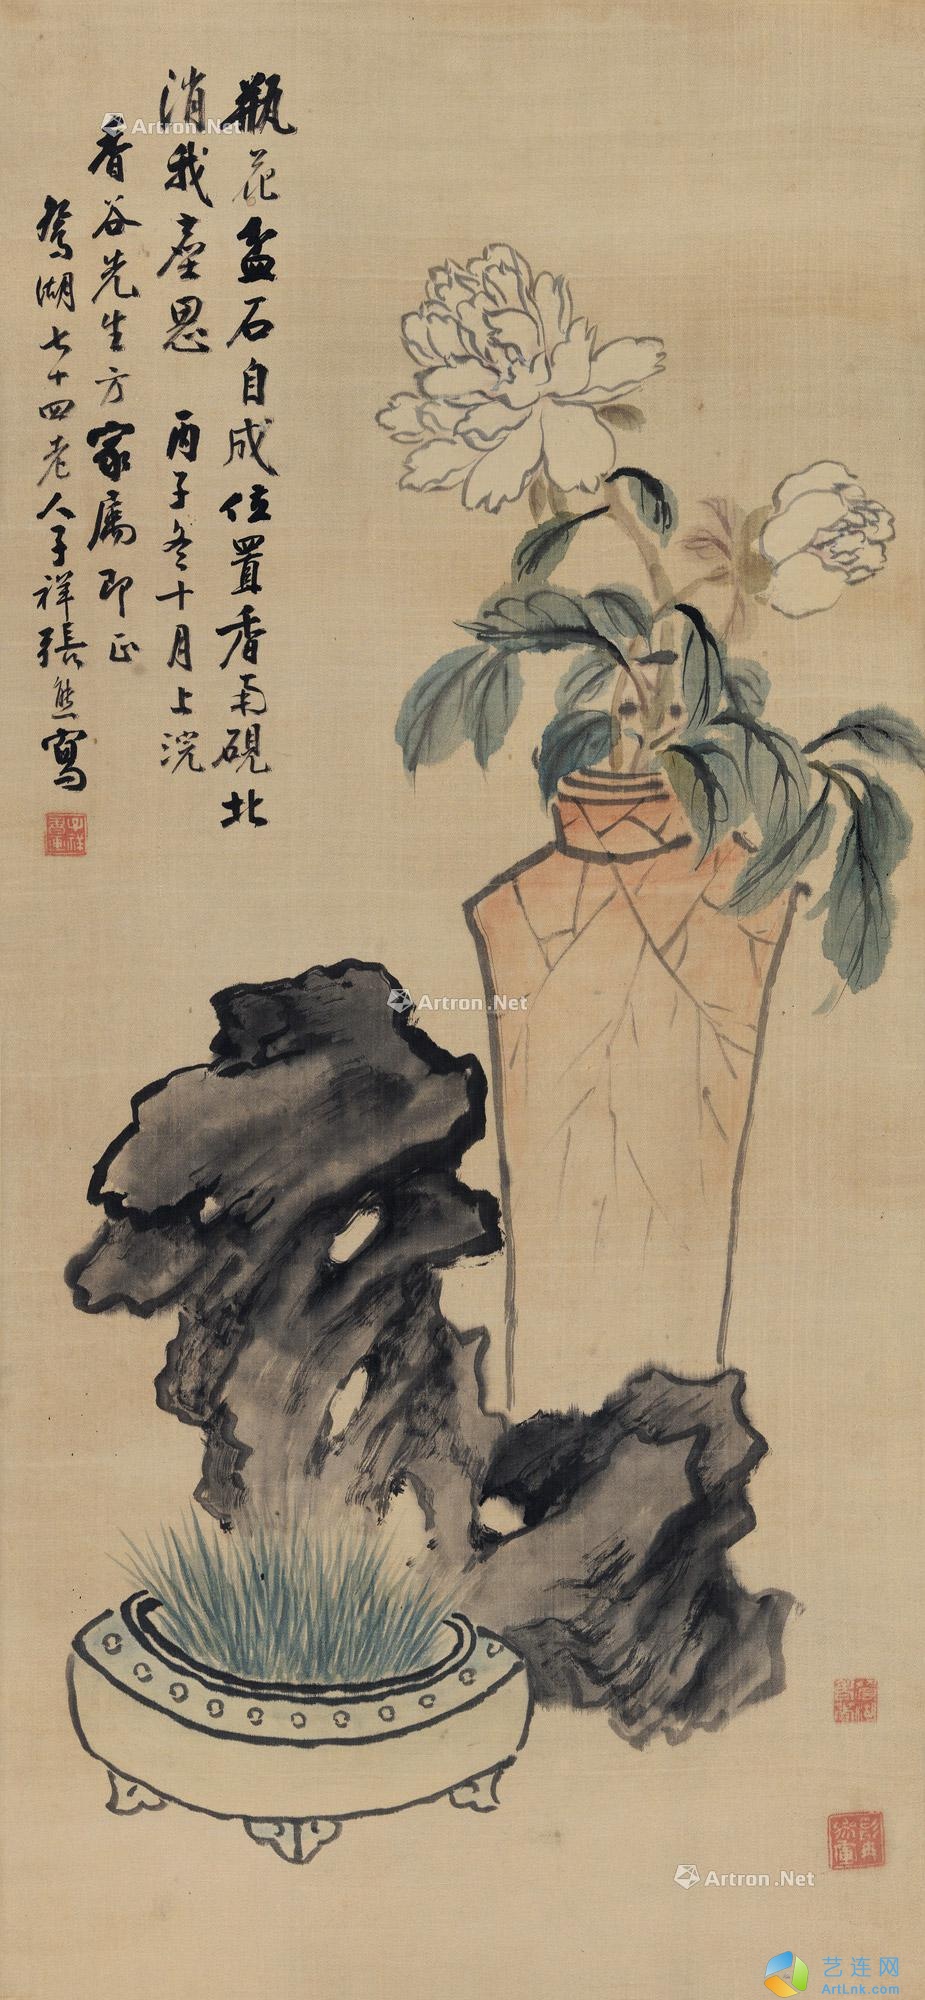 瓶花盆石自成位置香南硯北
消我塵思　丙子冬十月上浣
香谷先生方家屬即正
鴛湖七十四老人子祥張熊寫
Artron.Net
Artron.Net
Artron.Net
艺连网
ArtLnk.com